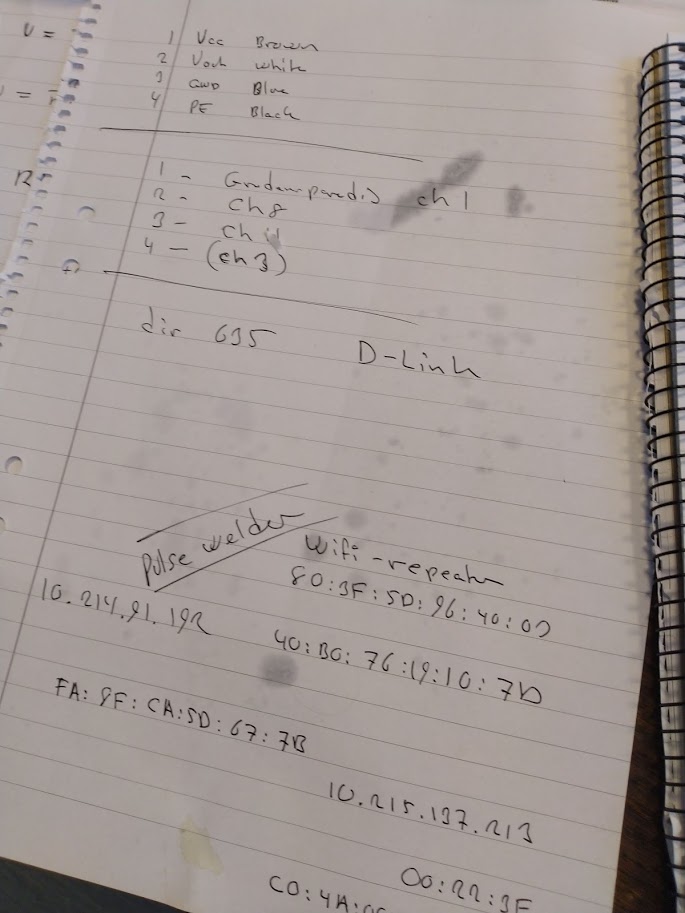 V =
1 Vcc Brown
2 Vout white
3 GND Blue
4 PE Black
12
1 - ch 1
2 - ch 8
3 - ch 11
4 - (ch 3)
dir 635 D-Link
pulse welder
Wifi-repeater
80:3F:5D:96:40:00
10.214.91.192
40:B0:76:19:10:7D
FA:9F:CA:5D:67:7B
10.215.137.213
00:22:3F
C0:4A: